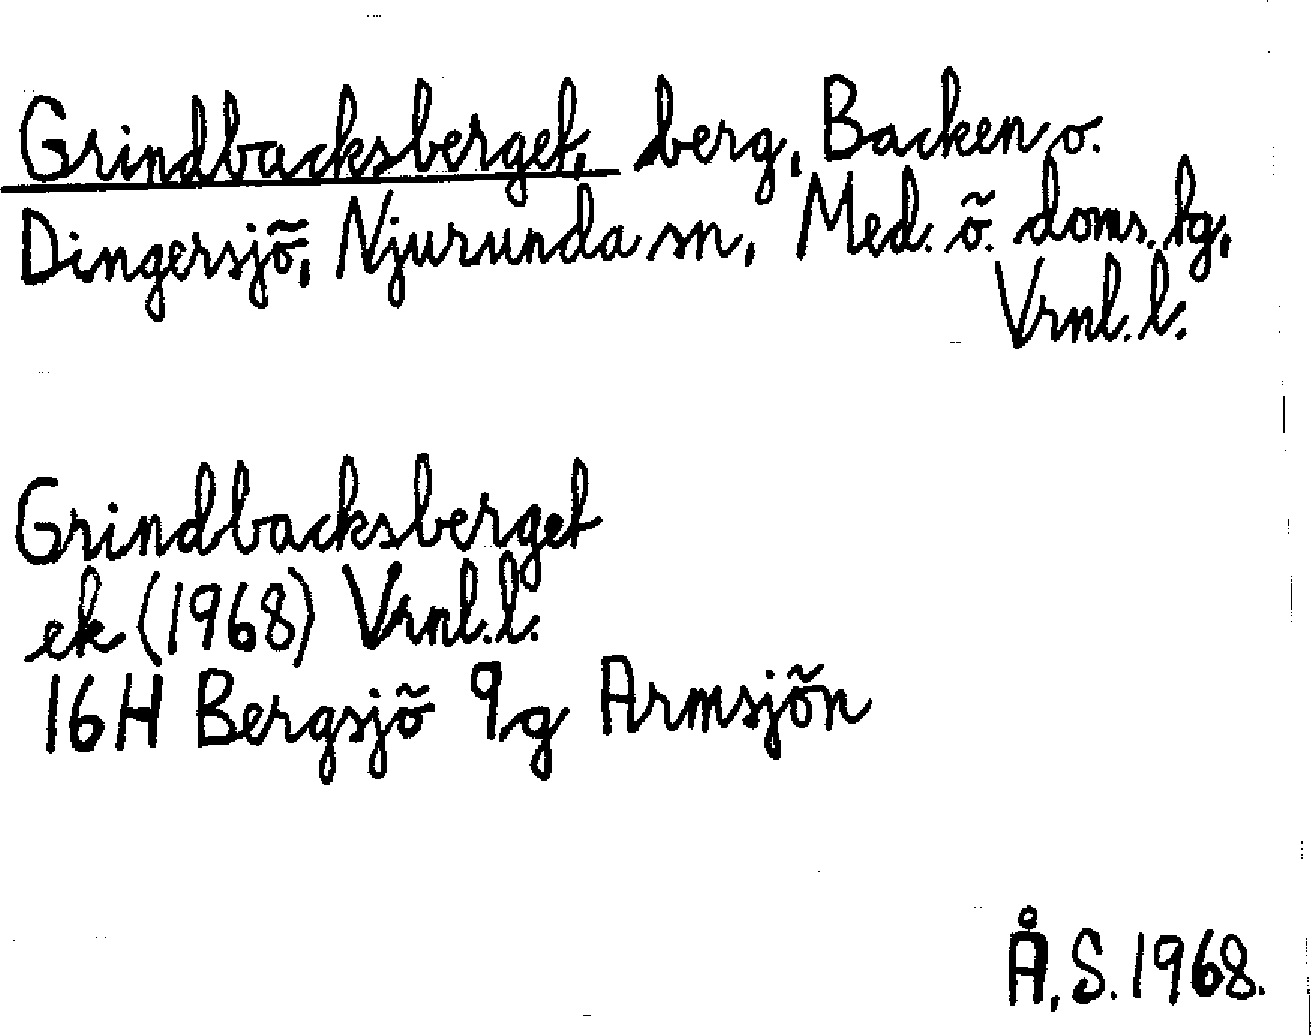 Grindbacksberget, berg, Backen o.
Dingersjö, Njurunda sn, Med. ö. doms. lg,
Vrnl. l.
Grindbacksberget
ek (1968) Vrnl. l.
16H Bergsjö 9g Armsjön
Å. S. 1968.